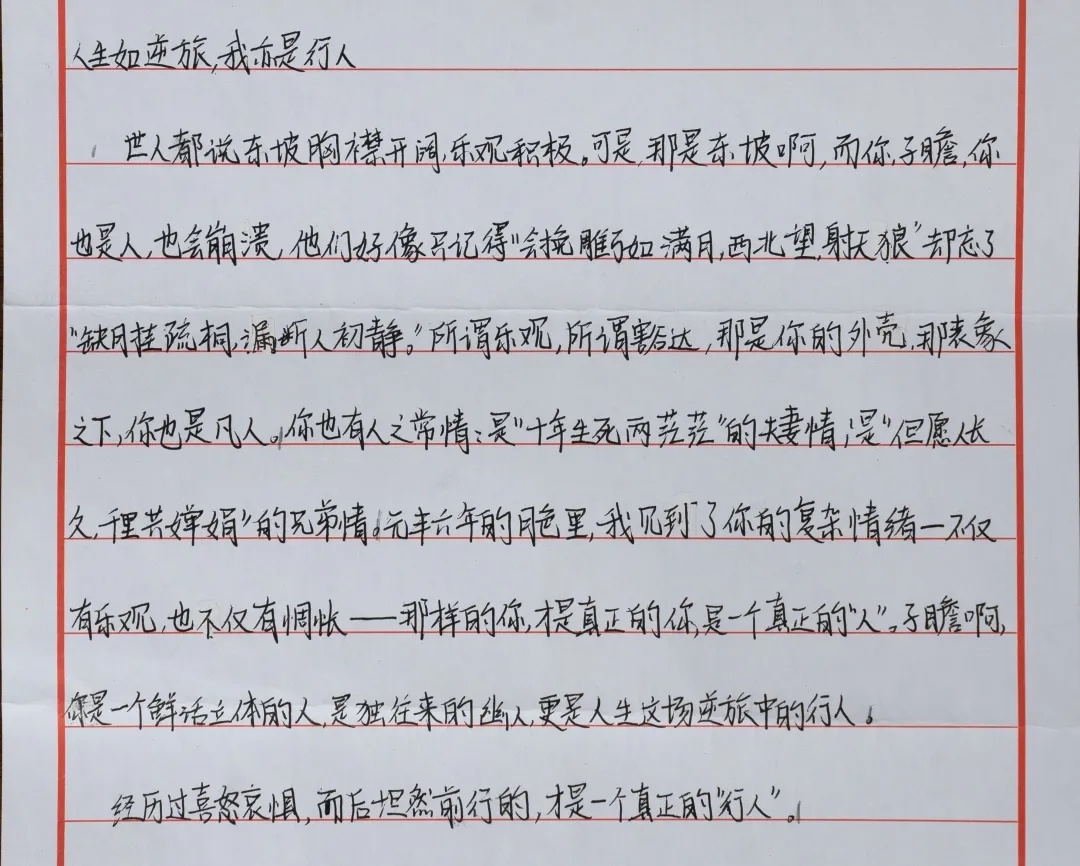 人生如逆旅,我亦是行人
世人都说东坡胸襟开阔,乐观积极。可是,那是东坡啊,而你,子瞻,你
也是人,也会崩溃,他们好像只记得“会挽雕弓如满月,西北望,射天狼”却忘了
“缺月挂疏桐,漏断人初静。”所谓乐观,所谓豁达,那是你的外壳,那表象
之下,你也是凡人。你也有人之常情:是“十年生死两茫茫”的夫妻情;是“但愿人长
久,千里共婵娟”的兄弟情。元丰六年的月色里,我见到了你的复杂情绪—不仅
有乐观,也不仅有惆怅——那样的你,才是真正的你,是一个真正的“人”。子瞻啊,
你是一个鲜活立体的人,是独往来的幽人,更是人生这场逆旅中的行人。
经历过喜怒哀惧,而后坦然前行的,才是一个真正的“行人”。